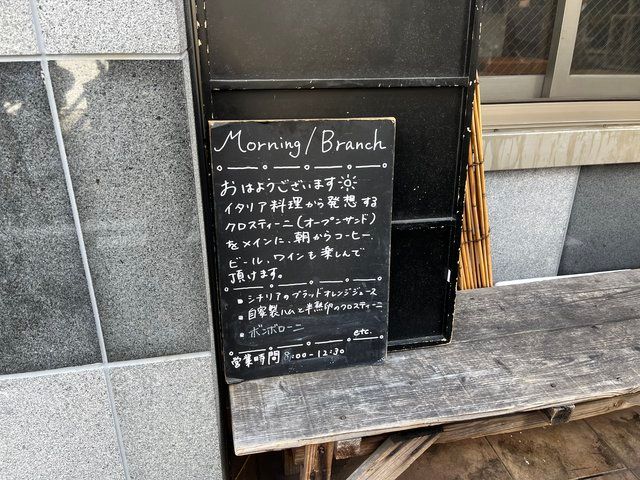 Morning/Branch
おはようございます
イタリア料理から発想する
クロスティーニ(オープンサンド)
をメインに、朝からコーヒー、
ビール、ワインも楽しんで
頂けます。
シチリアのブラッドオレンジジュース
自家製ハムと半熟卵のクロスティーニ
ボンボローニ
etc.
営業時間 8:00-12:30